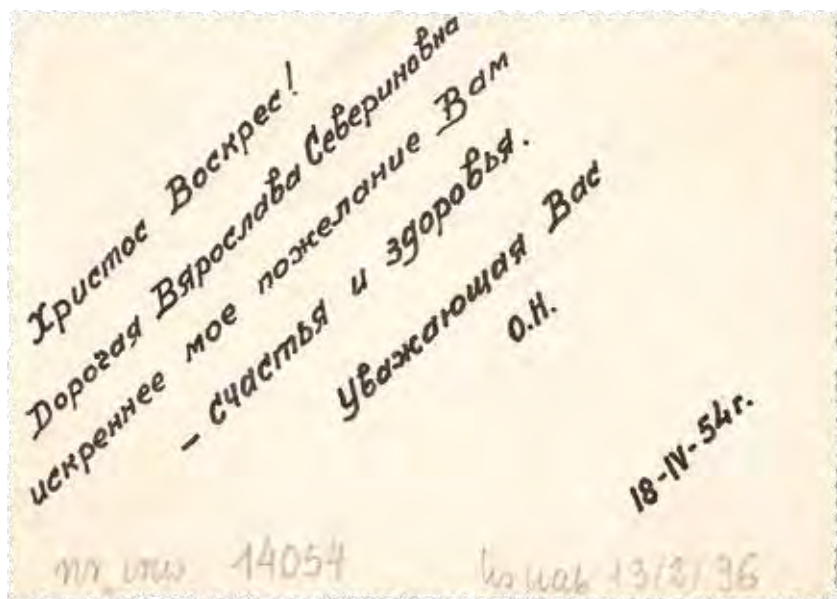 Христос Воскрес!
Дорогая Вярослава Севериновна
искреннее мое пожелание Вам
- счастья и здоровья.
Уважающая Вас
О.Н.
18-IV-54г.
nr inw 14054
ks nab 13/2/96